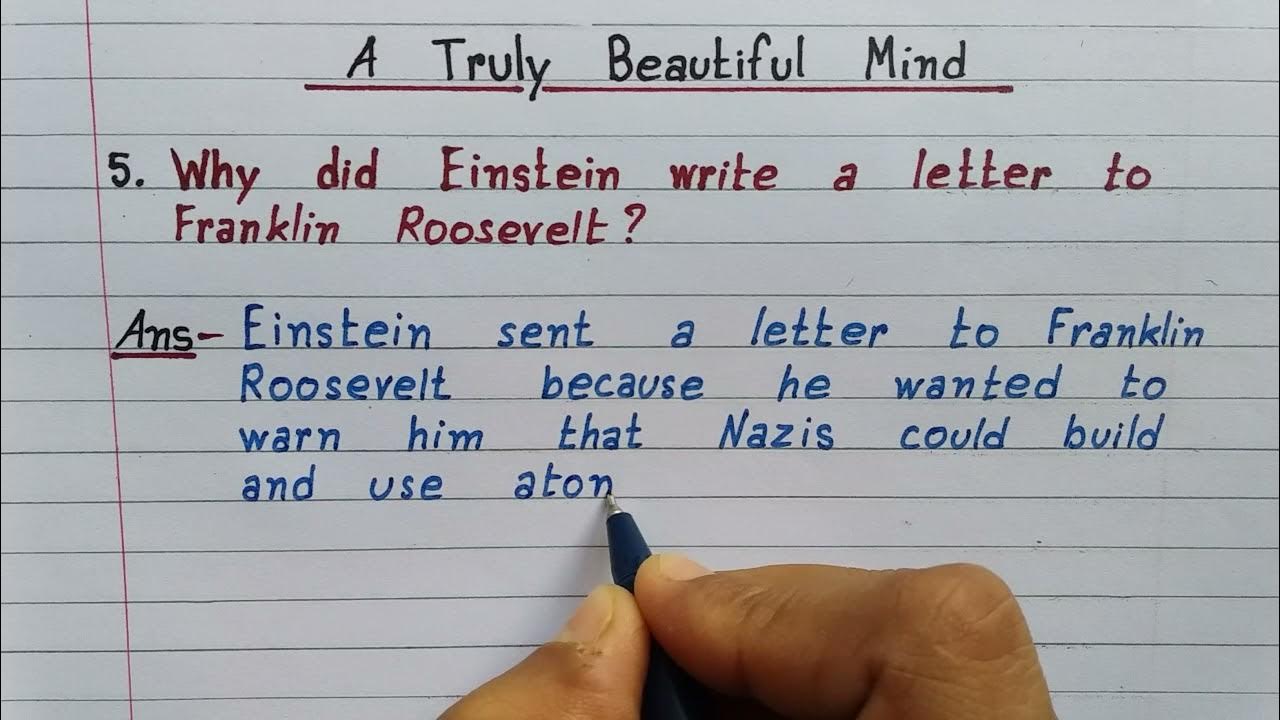 A Truly Beautiful Mind
5. Why did Einstein write a letter to
Franklin Roosevelt?
Ans- Einstein sent a letter to Franklin
Roosevelt because he wanted to
warn him that Nazis could build
and use aton